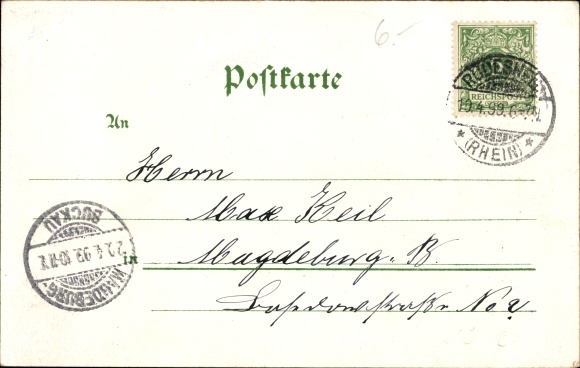 6.-
Postkarte
REICHSPOST
RÜDESHEIM
19.4.99.6-7N.
* (RHEIN) *
An
Herrn
Max Keil
in Magdeburg-B.
Basedowstraße No
MAGDEBURG-
20.4.99.10-11V.
BUCKAU